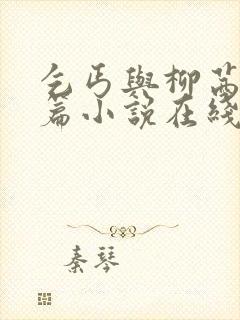 乞丐與柳茜
篇小說在綫
秦琴